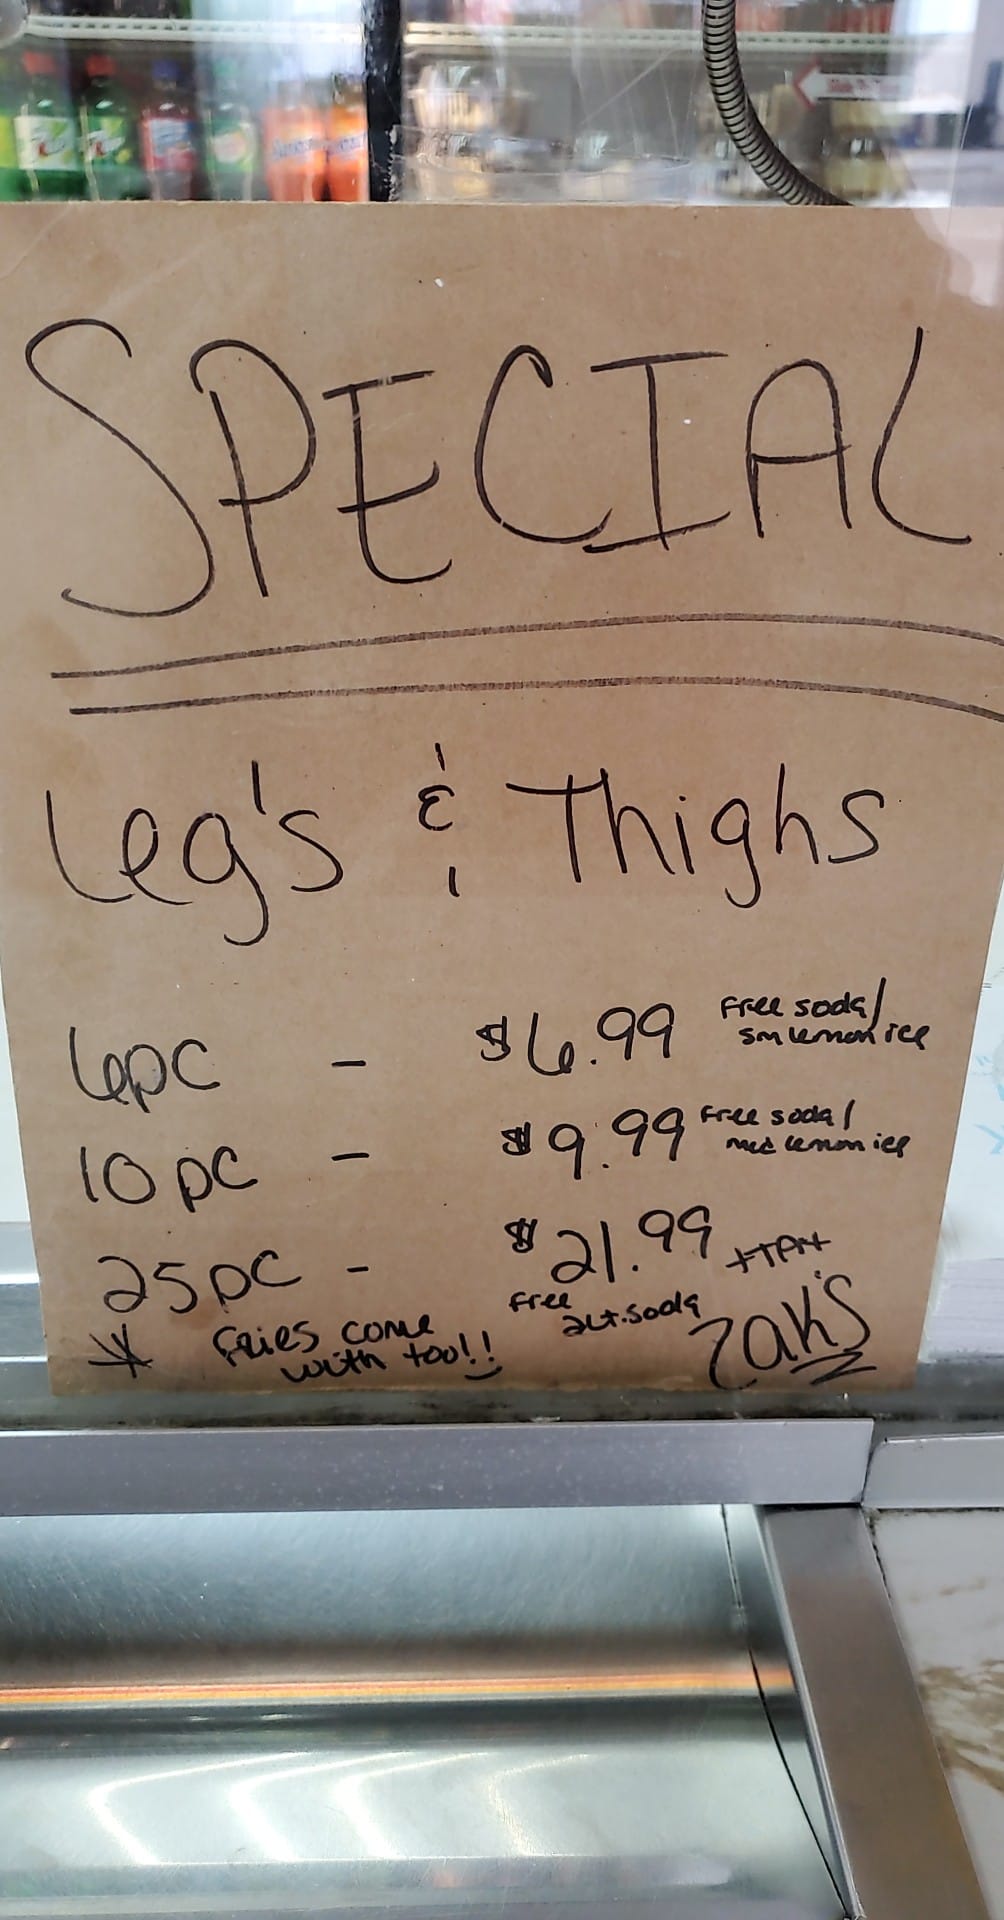 SPECIAL
Leg's & Thighs
6pc - $6.99 Free soda/
sm lemon ice
10 pc - $9.99 Free soda/
med lemon ice
25pc - $21.99 +TAX
Free
2Lt. soda
* Fries come
with too!!
Zak's